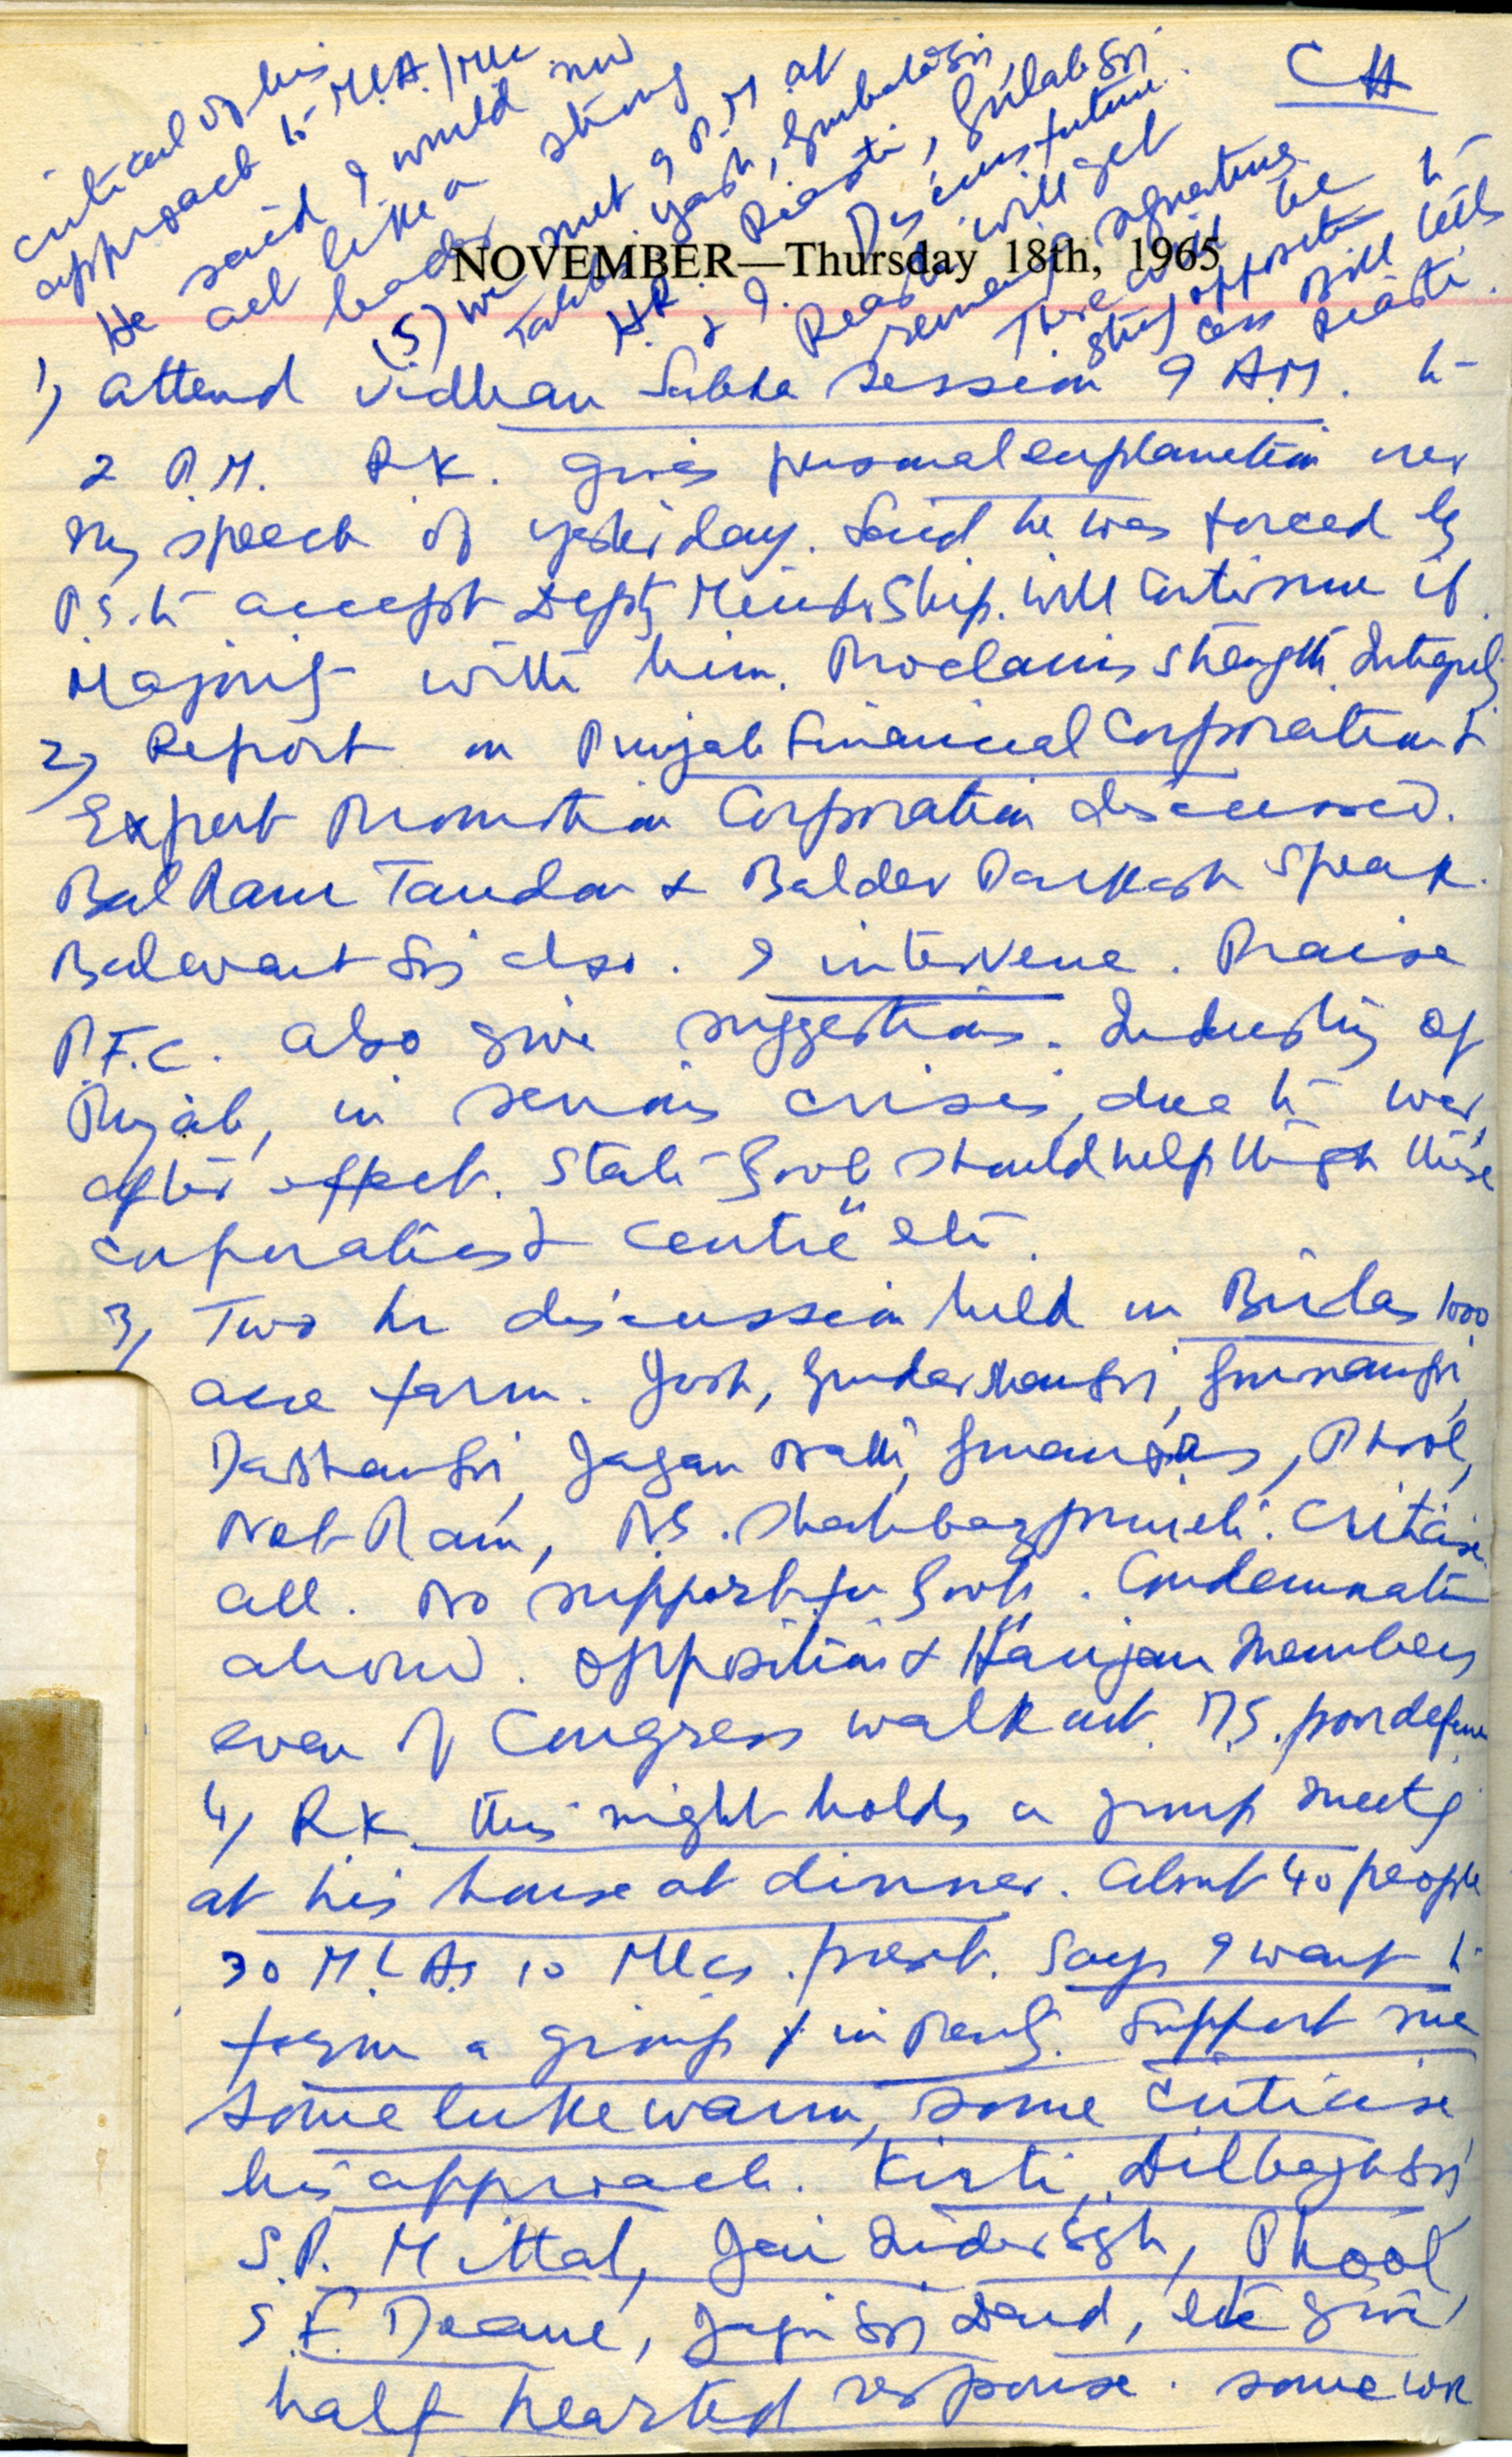 CH
NOVEMBER—Thursday 18th, 1965
1) attend Vidhan Sabha Session 9 A.M. to
2 P.M. R.K. gives personal explanation over
my speech of yesterday. Said he was forced by
P.S. to accept Depty Ministership. Will continue if
Majority with him. Proclaims strength, Integrity
2) Report on Punjab Financial Corporation &
Export Promotion Corporation discussed.
Bal Ram Tandon & Baldev Parkash speak.
Balwant Sri also. I intervene. Praise
P.F.C. also give suggestions. Industry of
Punjab, in serious crisis, due to war,
after effect. State Govt should help through these
corporations & Centre etc.
3) Two hr discussion held on Birlas 1000
acre farm. Josh, Gurdarshan Sri, Gurnam Sri,
Darshan Sri, Jagan Nath, , Phool,
Net Ram, N.S. Shahbazpuri etc. Criticise
all. No support for Govt. Condemnation
all round. Opposition & Harijan Members
even of Congress walk out. poor defence
4) R.K. this night holds a group meetg
at his house at dinner. About 40 people
30 M.L.As 10 MLCs. present. Says I want to
form a group in Party. Support me
Some lukewarm, some criticise
his approach. Kirti, Dilbagh Sri
S.P. Mittal, Jai Inder Sgh, Phool
, Jagir Sri Dard, etc give
half hearted response. Some were
critical of his
approach to M.L.A./MLC
He said I would now
act like a strong
leader
(5) We met 9 P.M. at
Yash, Gurbaksh Sri,
H.R. Riasti, Gulab Sri
& I. Discuss future.
Riasti will get
signatures.
There will be
strong opposition to
Cess Bill tells
Riasti.